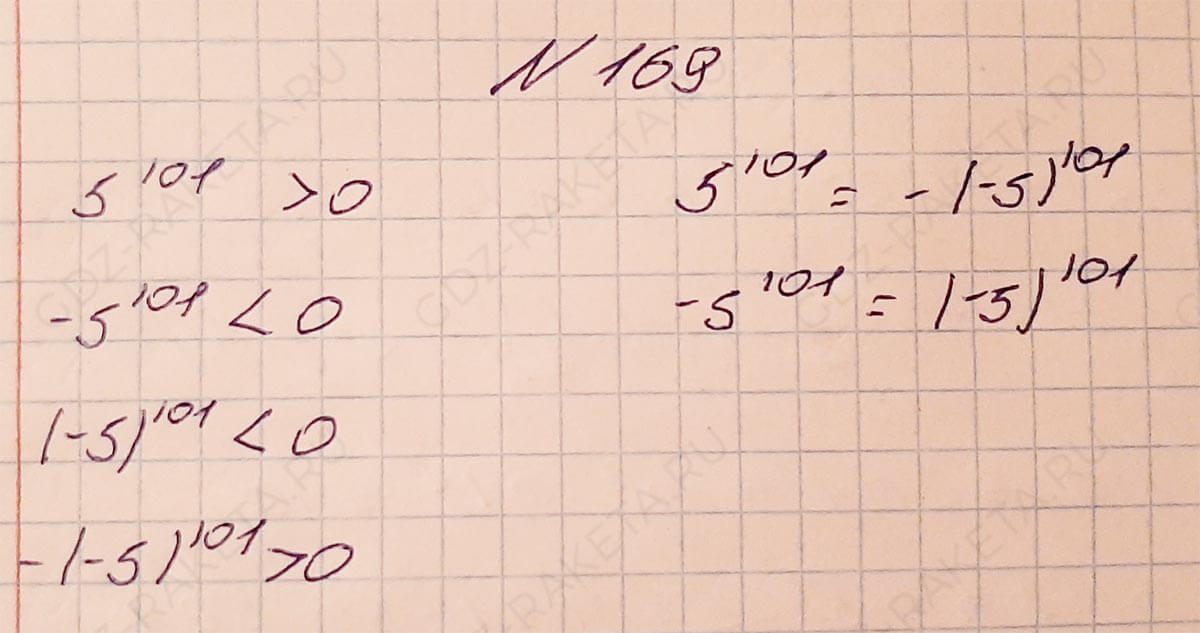 N 169
5^101 > 0
-5^101 < 0
(-5)^101 < 0
-(-5)^101 > 0
5^101 = -(-5)^101
-5^101 = (-5)^101
GDZ-RAKETA.RU